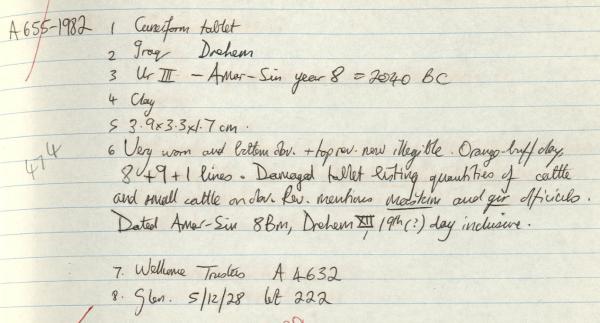 A655-1982 1 Cuneiform tablet
2 Iraq Drehem
3 Ur III - Amar-Sin year 8 = 2040 BC
4 Clay
5 3.9x3.3x1.7cm.
474 6 Very worn and bottom obv. + top rev. now illegible. Orange-buff clay,
8+9+1 lines. Damaged tablet listing quantities of cattle
and small cattle on obv. Rev. mentions and gir officials.
Dated Amar-Sin 8 Bm, Drehem XII, 19th(?) day inclusive.
7. Wellcome Trustees A 4632
8. Glen. 5/12/28 lot 222